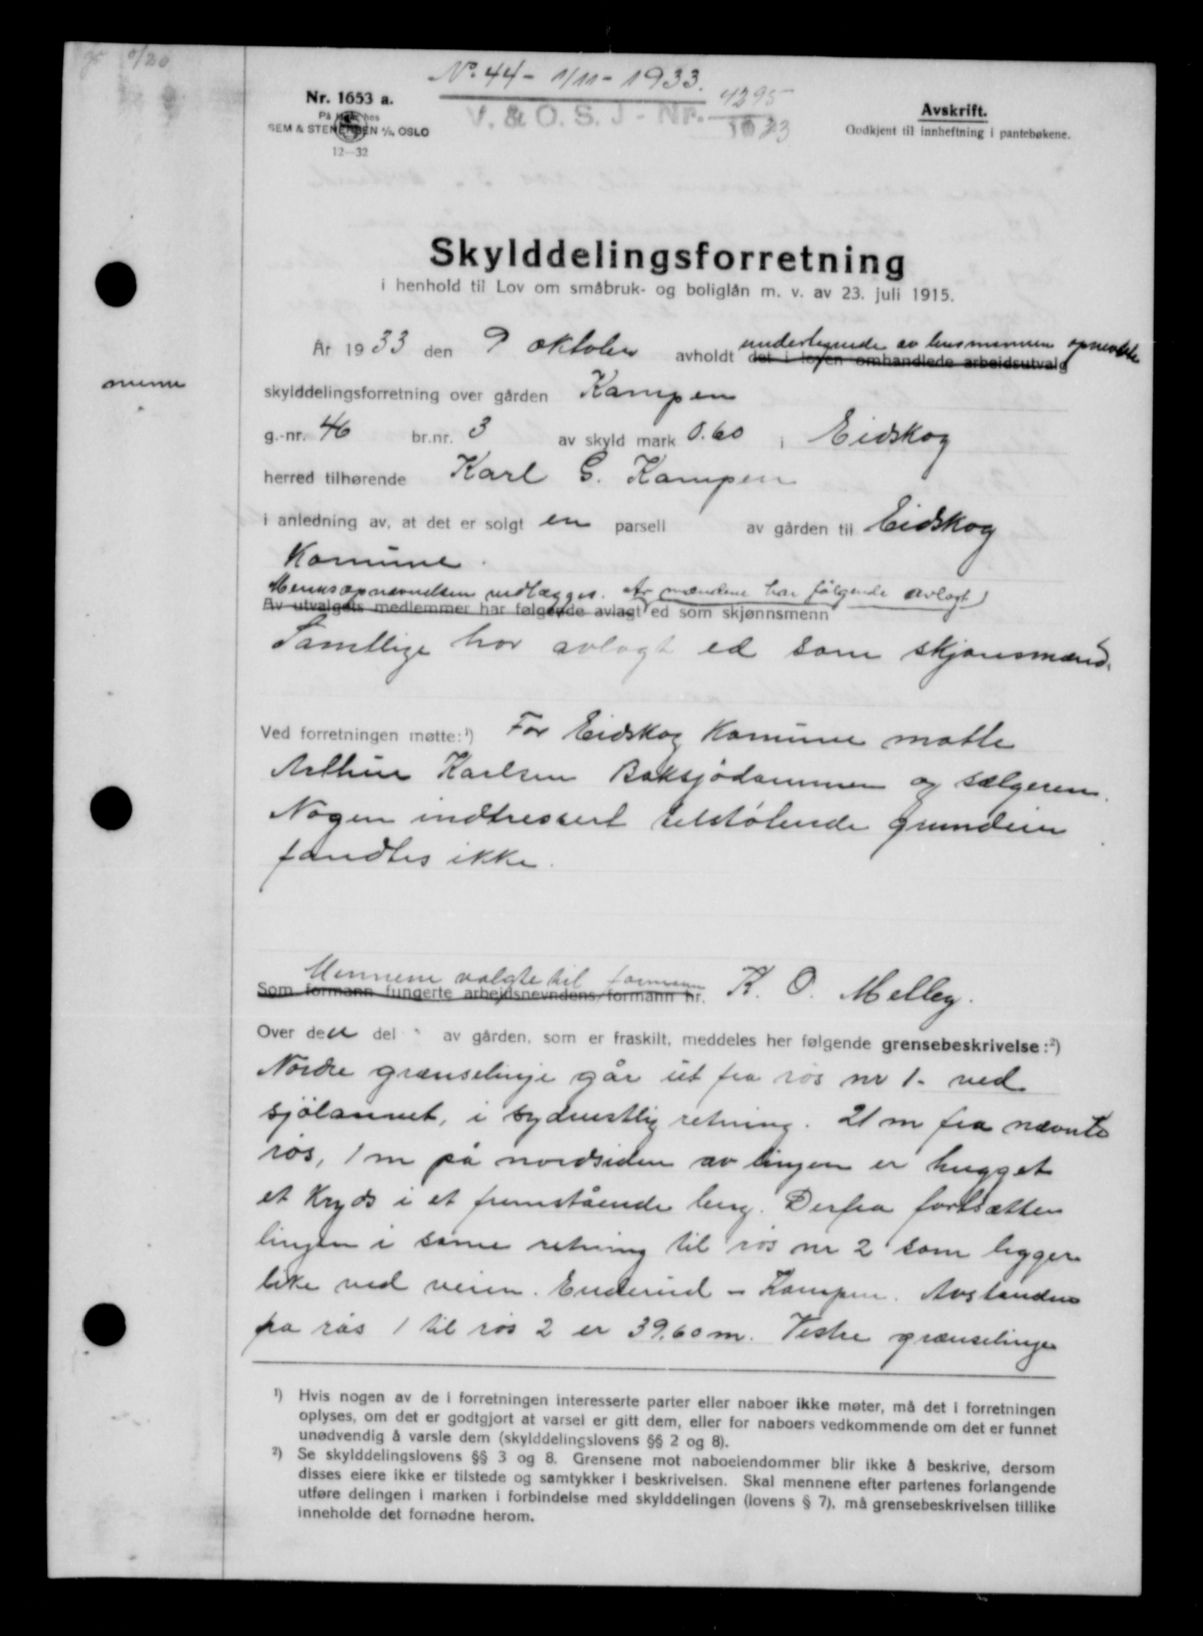 No. 44 - 1/11 - 1933.
V. & O. S. J - Nr. 4295
1933
Nr. 1653 a.
På lager hos
SEM & STENERSEN A/S, OSLO
12-32
Avskrift.
Godkjent til innheftning i pantebøkene.
Skylddelingsforretning
i henhold til Lov om småbruk- og boliglån m. v. av 23. juli 1915.
År 1933 den 9 oktober avholdt undertegnede av lensmannen opnevnte
det i loven omhandlede arbeidsutvalg
menn
skylddelingsforretning over gården Kampen
g.-nr. 46 br.nr. 3 av skyld mark 0.60 i Eidskog
herred tilhørende Karl G. Kampen
i anledning av, at det er solgt en parsell av gården til Eidskog
Komune.
Menns opnevnelsen vedlægges. Av mændene har følgende avlagt
Av utvalgets medlemmer har følgende avlagt ed som skjønnsmenn
Samtlige har avlagt ed som skjønsmænd.
Ved forretningen møtte:¹) For Eidskog Komune møtte
Arthur Karlsen Baksjødammen og sælgeren.
Nogen indtressert tilstøtende grundeier
fandtes ikke.
Mennene valgte til formann
Som formann fungerte arbeidsnevndens formann hr. K. O. Melley.
Over den del av gården, som er fraskilt, meddeles her følgende grensebeskrivelse:²)
Nordre grænselinje går ut fra røs nr 1. ved
sjølannet, i sydvestlig retning. 21 m fra nævnte
røs, 1 m på nordsiden av linjen er hugget
et kryds i et fremstående berg. Derfra fortsætter
linjen i same retning til røs nr 2 som ligger
like ved veien. - Kampen. Avstanden
fra røs 1 til røs 2 er 39.60 m. Vestre grænselinje
¹) Hvis nogen av de i forretningen interesserte parter eller naboer ikke møter, må det i forretningen
oplyses, om det er godtgjort at varsel er gitt dem, eller for naboers vedkommende om det er funnet
unødvendig å varsle dem (skylddelingslovens §§ 2 og 8).
²) Se skylddelingslovens §§ 3 og 8. Grensene mot naboeiendommer blir ikke å beskrive, dersom
disses eiere ikke er tilstede og samtykker i beskrivelsen. Skal mennene efter partenes forlangende
utføre delingen i marken i forbindelse med skylddelingen (lovens § 7), må grensebeskrivelsen tillike
inneholde det fornødne herom.